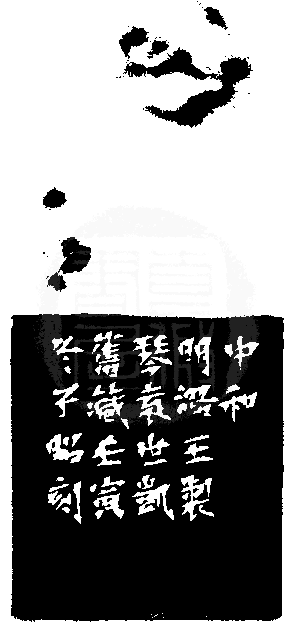 中和
明潞王製
琴袁世凱
舊藏壬寅
冬子昭刻